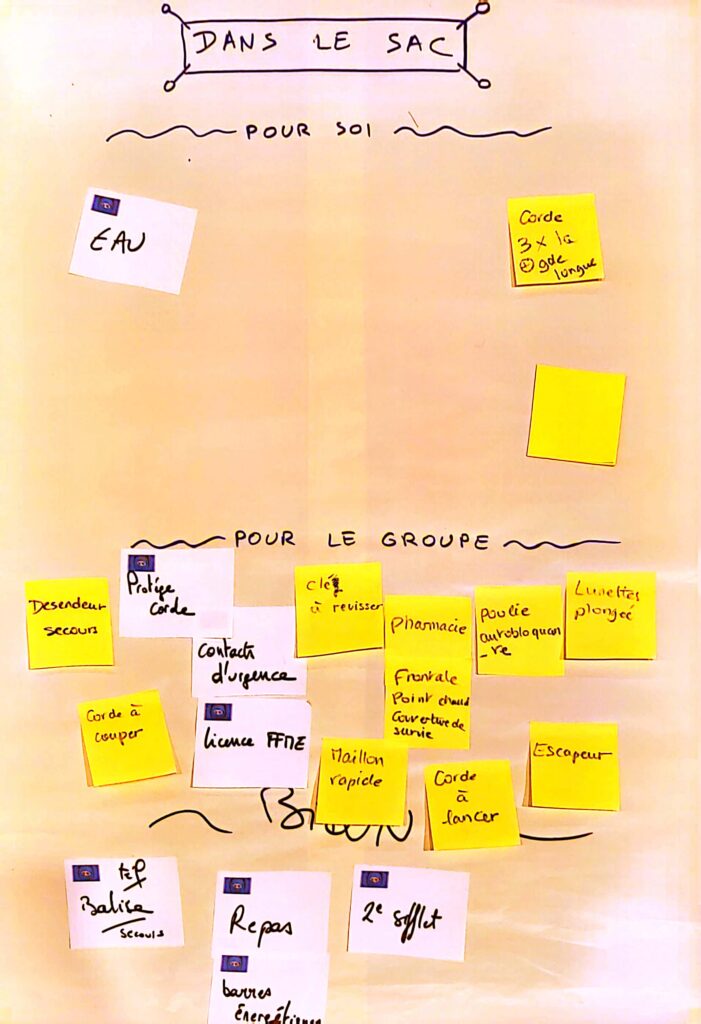 DANS LE SAC
POUR SOI
EAU
Corde
3 x la
gde
longue
POUR LE GROUPE
Desendeur
secours
Protège
corde
contacts
d'urgence
clé
à revisser
Pharmacie
Poulie
autobloquan
-re
Lunettes
plongée
Frontale
Point chaud
Couverture de
survie
Corde à
couper
licence FFME
Maillon
rapide
Corde
à
lancer
Escapeur
tel
Balise
secours
Repas
2e sifflet
barres
Energétiques